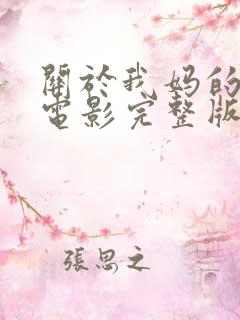 關於我妈的
電影完整版
張思之